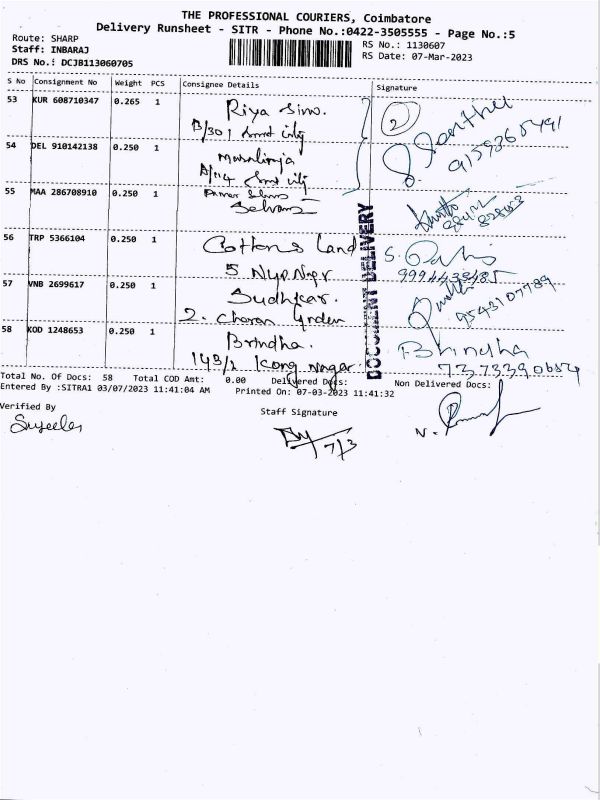 THE PROFESSIONAL COURIERS, Coimbatore
Delivery Runsheet - SITR - Phone No.:0422-3505555 - Page No.:5
Route: SHARP
RS No.: 1130607
Staff: INBARAJ
RS Date: 07-Mar-2023
DRS No.: DCJB113060705
S No Consignment No Weight PCS Consignee Details Signature
53 KUR 608710347 0.265 1 Riya
B/301 2
54 DEL 910142138 0.250 1
A/114
55 MAA 286708910 0.250 1
Selvam
56 TRP 5366104 0.250 1 Cottons Land
5 Nyp Ngr
57 VNB 2699617 0.250 1 Sudhkar.
2. Charan Grden 9543107789
58 KOD 1248653 0.250 1 Brindha. Bhindha
143/2 Kong Nagar
DOCUMENT DELIVERY
Total No. Of Docs: 58 Total COD Amt: 0.00 Delivered Docs: Non Delivered Docs:
Entered By :SITRA1 03/07/2023 11:41:04 AM Printed On: 07-03-2023 11:41:32
Verified By
Staff Signature
7/3